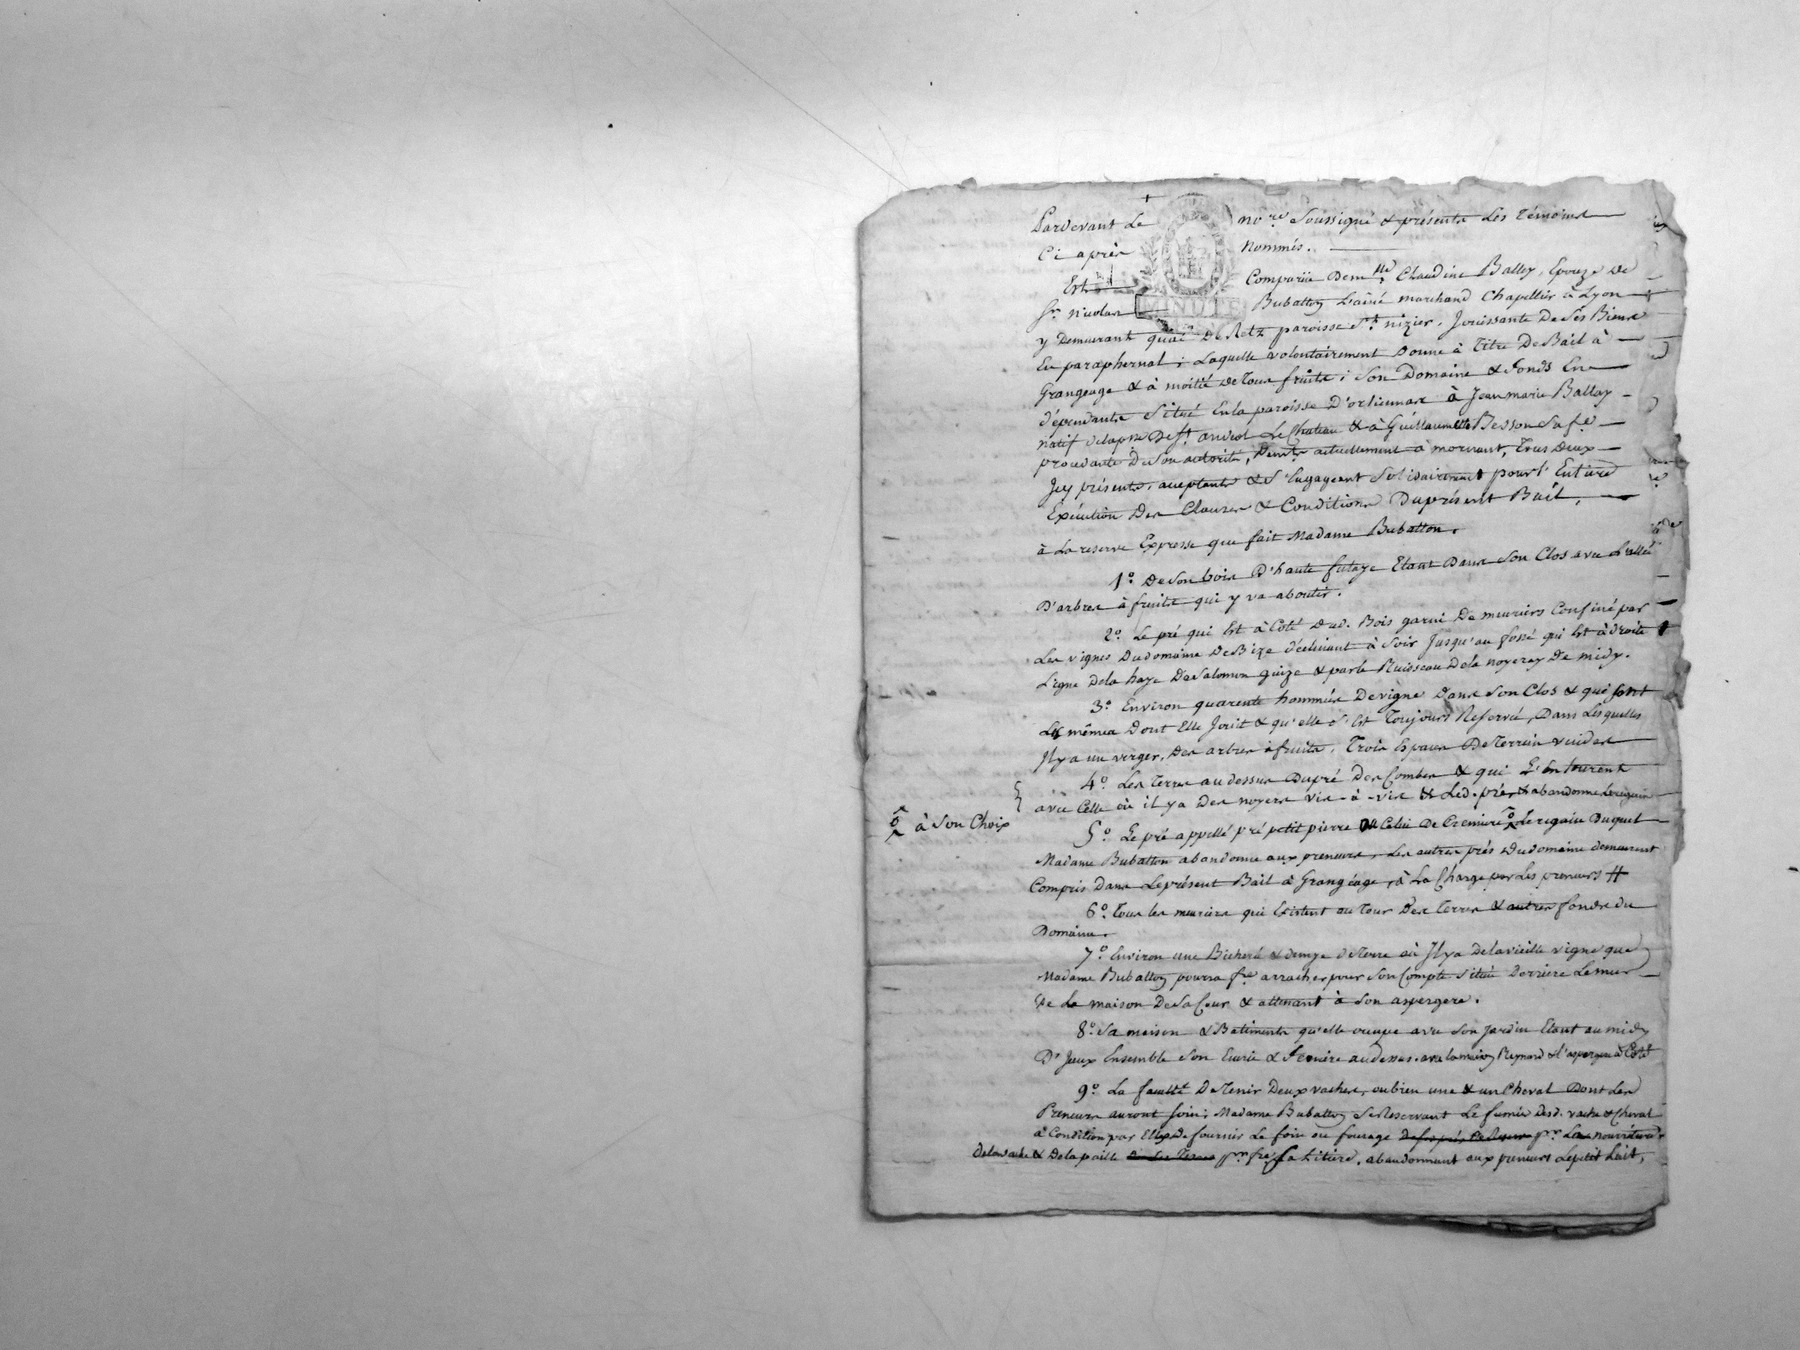 Pardevant Le nore. Soussigné & présents Les Témoins
Ci après Nommés.
Est Comparüe Demlle. Claudine Balley, Epouze De
Sr. Nicolas Bubatton L'ainé marchand Chapellier à Lyon
y Demeurant quai De Retz paroisse St. nizier, Jouissante De Ses Biens
En paraphernal; Laquelle volontairement Donne à Titre De Bail à
Grangeage & à moitié de Tous fruits; Son Domaine & fonds En
dépendants Situé En la paroisse D'orlienas à Jean marie Ballay
natif de la psse De St. andeol Le Chateau & à Guillaumette Besson Sa fe.
procedante De Son autorité, Demts. actuellement à mornant, Tous Deux
Jcy présents, acceptants & S'Engageant Solidairement pour l'Entiere
Exécution Des Clauses & Conditions Du présent Bail,
à La reserve Expresse que fait Madame Bubatton.
1o. De Son bois D'haute futaye Etant Dans Son Clos avec L'allée
D'arbres à fruits qui y va aboutir.
2o. Le pré qui Est à Coté Dud. Bois garni De meuriers Confiné par
Les vignes Du domaine De Bize déclinant à Soir Jusqu'au fossé qui Est à droite
Ligne De la haye De Salomon guize & par le Ruisseau De la noyeray De midy.
3o. Environ quarente hommées De vigne Dans Son Clos & qui Sont
Les mêmes Dont Elle Jouit & qu'elle S'Est Toujours Reservée, Dans Lesquelles
Jl y a un verger, Des arbres à fruits, Trois Espaces De Terrein vuides
4o. Les Terres au dessus Du pré Des Combes & qui L'Entourent
avec Celle où il y a Des noyers vis-à-vis & Led. pré & abandonne Le regain
à Son Choix
5o. Le pré appellé pré petit pierre ou Celui De Cremieu Le regain Duquel
Madame Bubatton abandonne aux preneurs, Les autres prés Du domaine demeurent
Compris Dans Le présent Bail à Grangéage, à La Charge par Les preneurs #
6o. Tous les meuriers qui Existent au Tour Des Terres & autres fonds du
Domaine.
7o. Environ une Bicherée & demye de Terre où Jl y a De la vieille vigne que
Madame Bubatton pourra fre arracher pour Son Compte Située Derriere Le mur
De La maison De Sa Cour & attenant à Son aspergere.
8o. Sa maison & Batiments qu'elle occupe avec Son Jardin Etant au midy
D'Jceux Ensemble Son Ecurie & Feniere au dessus. avec la maison Reynard & l'aspergere à Coté
9o. La faculté De Tenir Deux vaches, ou bien une & un Cheval Dont Les
Preneurs auront Soin; Madame Bubatton Se Reservant Le fumier desd. vache & Cheval
à Condition par Elle de fournir Le foin ou fourage pr. La nourriture
de la vache & De la paille pr. fre La Litiere, abandonnant aux preneurs Le petit Lait,